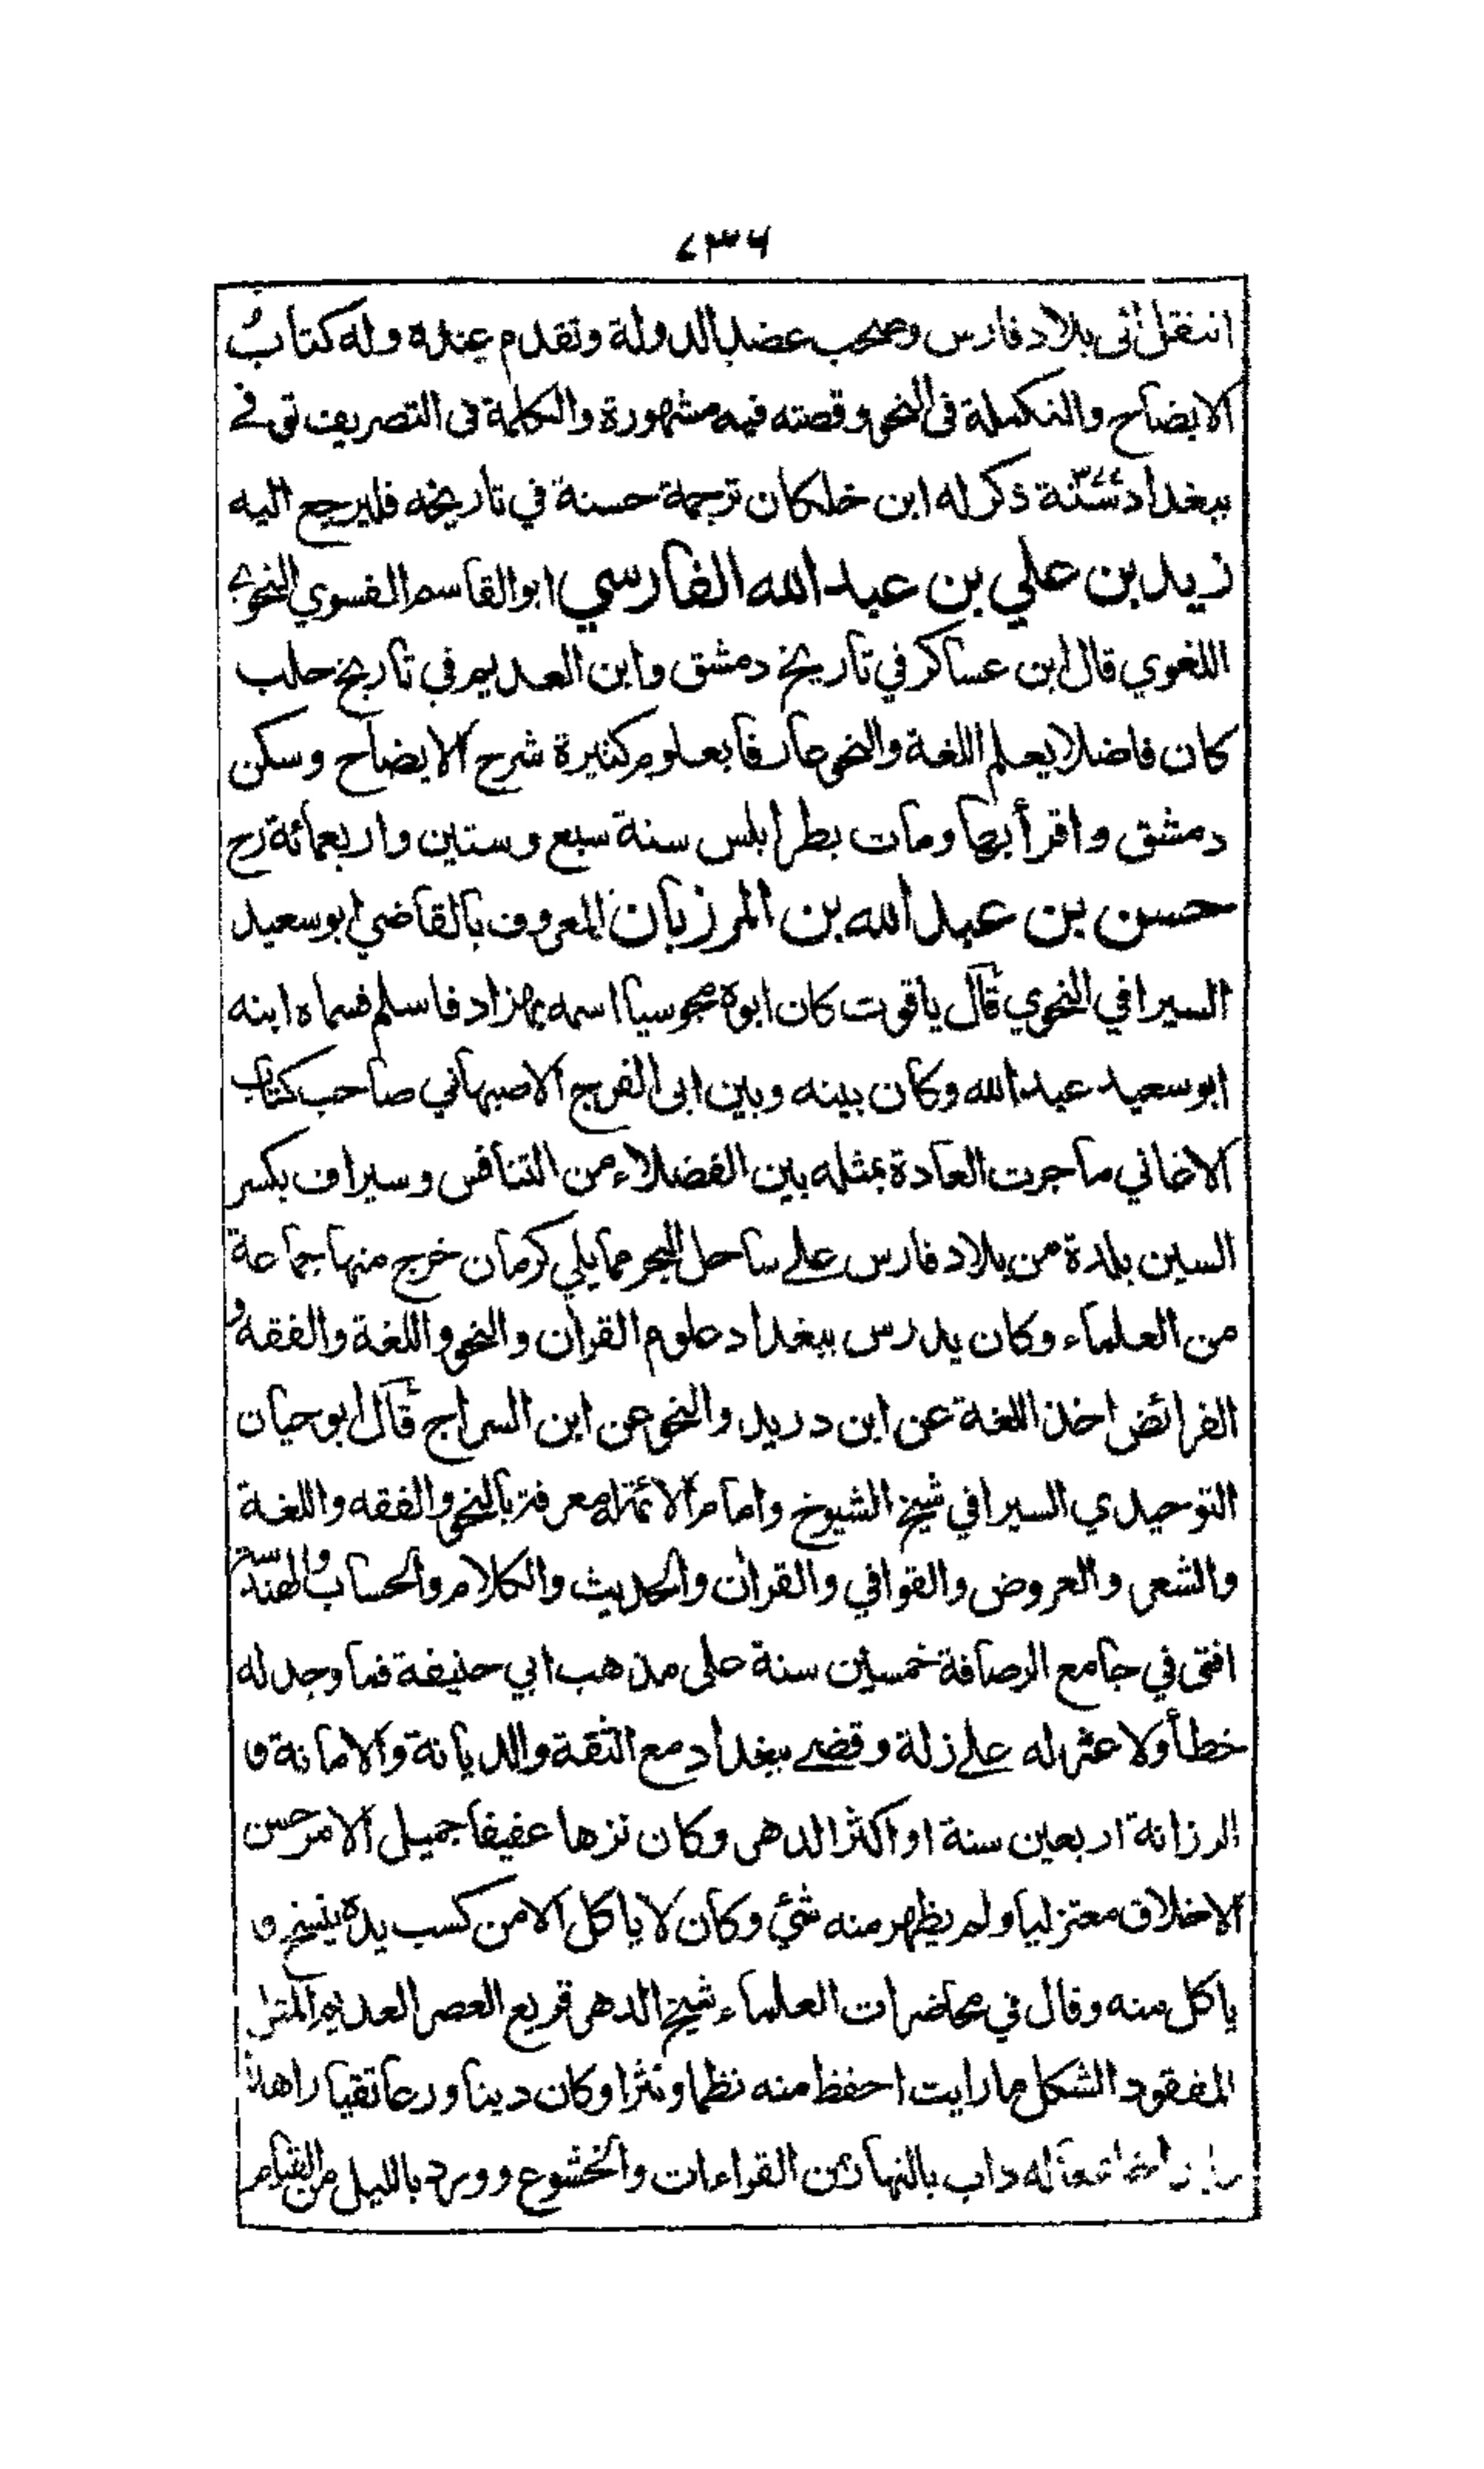 ٧٣٦
انتقل الى بلاد فارس وصحب عضد الدولة وتقدم عنده وله كتاب
الايضاح والتكملة فى النحو وقصته فيه مشهورة والتكلمة فى التصريف توفے
ببغداد سنة ذكر له ابن خلكان ترجمة حسنة في تاريخه فليرجع اليه
زيد بن علي بن عبد الله الفارسي ابو القاسم الفسوي النحوے
اللغوي قال ابن عساكر في تاريخ دمشق وابن العديم في تاريخ حلب
كان فاضلا يعلم اللغة والنحو عارفا بعلوم كثيرة شرح الايضاح وسكن
دمشق واقرأ بها ومات بطرابلس سنة سبع وستين واربعمائة رح
حسن بن عبد الله بن المرزبان المعروف بالقاضي ابو سعيد
السيرافي النحوي قال ياقوت كان ابوه مجوسيا اسمه بهزاد فاسلم فسماه ابنه
ابو سعيد عبد الله وكان بينه وبين ابى الفرج الاصبهاني صاحب كتاب
الاغاني ما جرت العادة بمثله بين الفضلاء من التنافس وسيراف بكسر
السين بلدة من بلاد فارس علے ساحل البحر مما يلي كرمان خرج منها جماعة
من العلماء وكان يدرس ببغداد علوم القران والنحو واللغة والفقه و
الفرائض اخذ اللغة عن ابن دريد والنحو عن ابن السراج قال ابو حيان
التوحيدي السيرافي شيخ الشيوخ وامام الائمة له معرفة بالنحو والفقه واللغة
والشعر والعروض والقوافي والقران والحديث والكلام والحساب والهندسة
افتى في جامع الرصافة خمسين سنة على مذهب ابي حنيفة فما وجد له
خطأ ولا عثر له علے زلة وقضے ببغداد مع الثقة والديانة والامانة و
الرزانة اربعين سنة او اكثر الدهر وكان نزها عفيفا جميل الامر حسن
الاخلاق معتزليا ولم يظهر منه شئ وكان لا ياكل الا من كسب يده ينسخ و
ياكل منه وقال في محاضرات العلماء شيخ الدهر قريع العصر العديم المثل
المفقود الشكل ما رايت احفظ منه نظما ونثرا وكان دينا ورعا تقيا زاهدا
خاشعا له داب بالنهار من القراءات والخشوع وورد بالليل من القيام